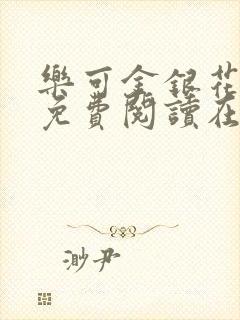 樂可金銀花
免費閱讀在
渺尹